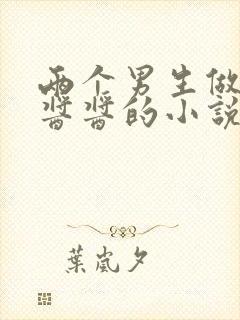 两个男生做
酱酱的小說
葉嵐夕